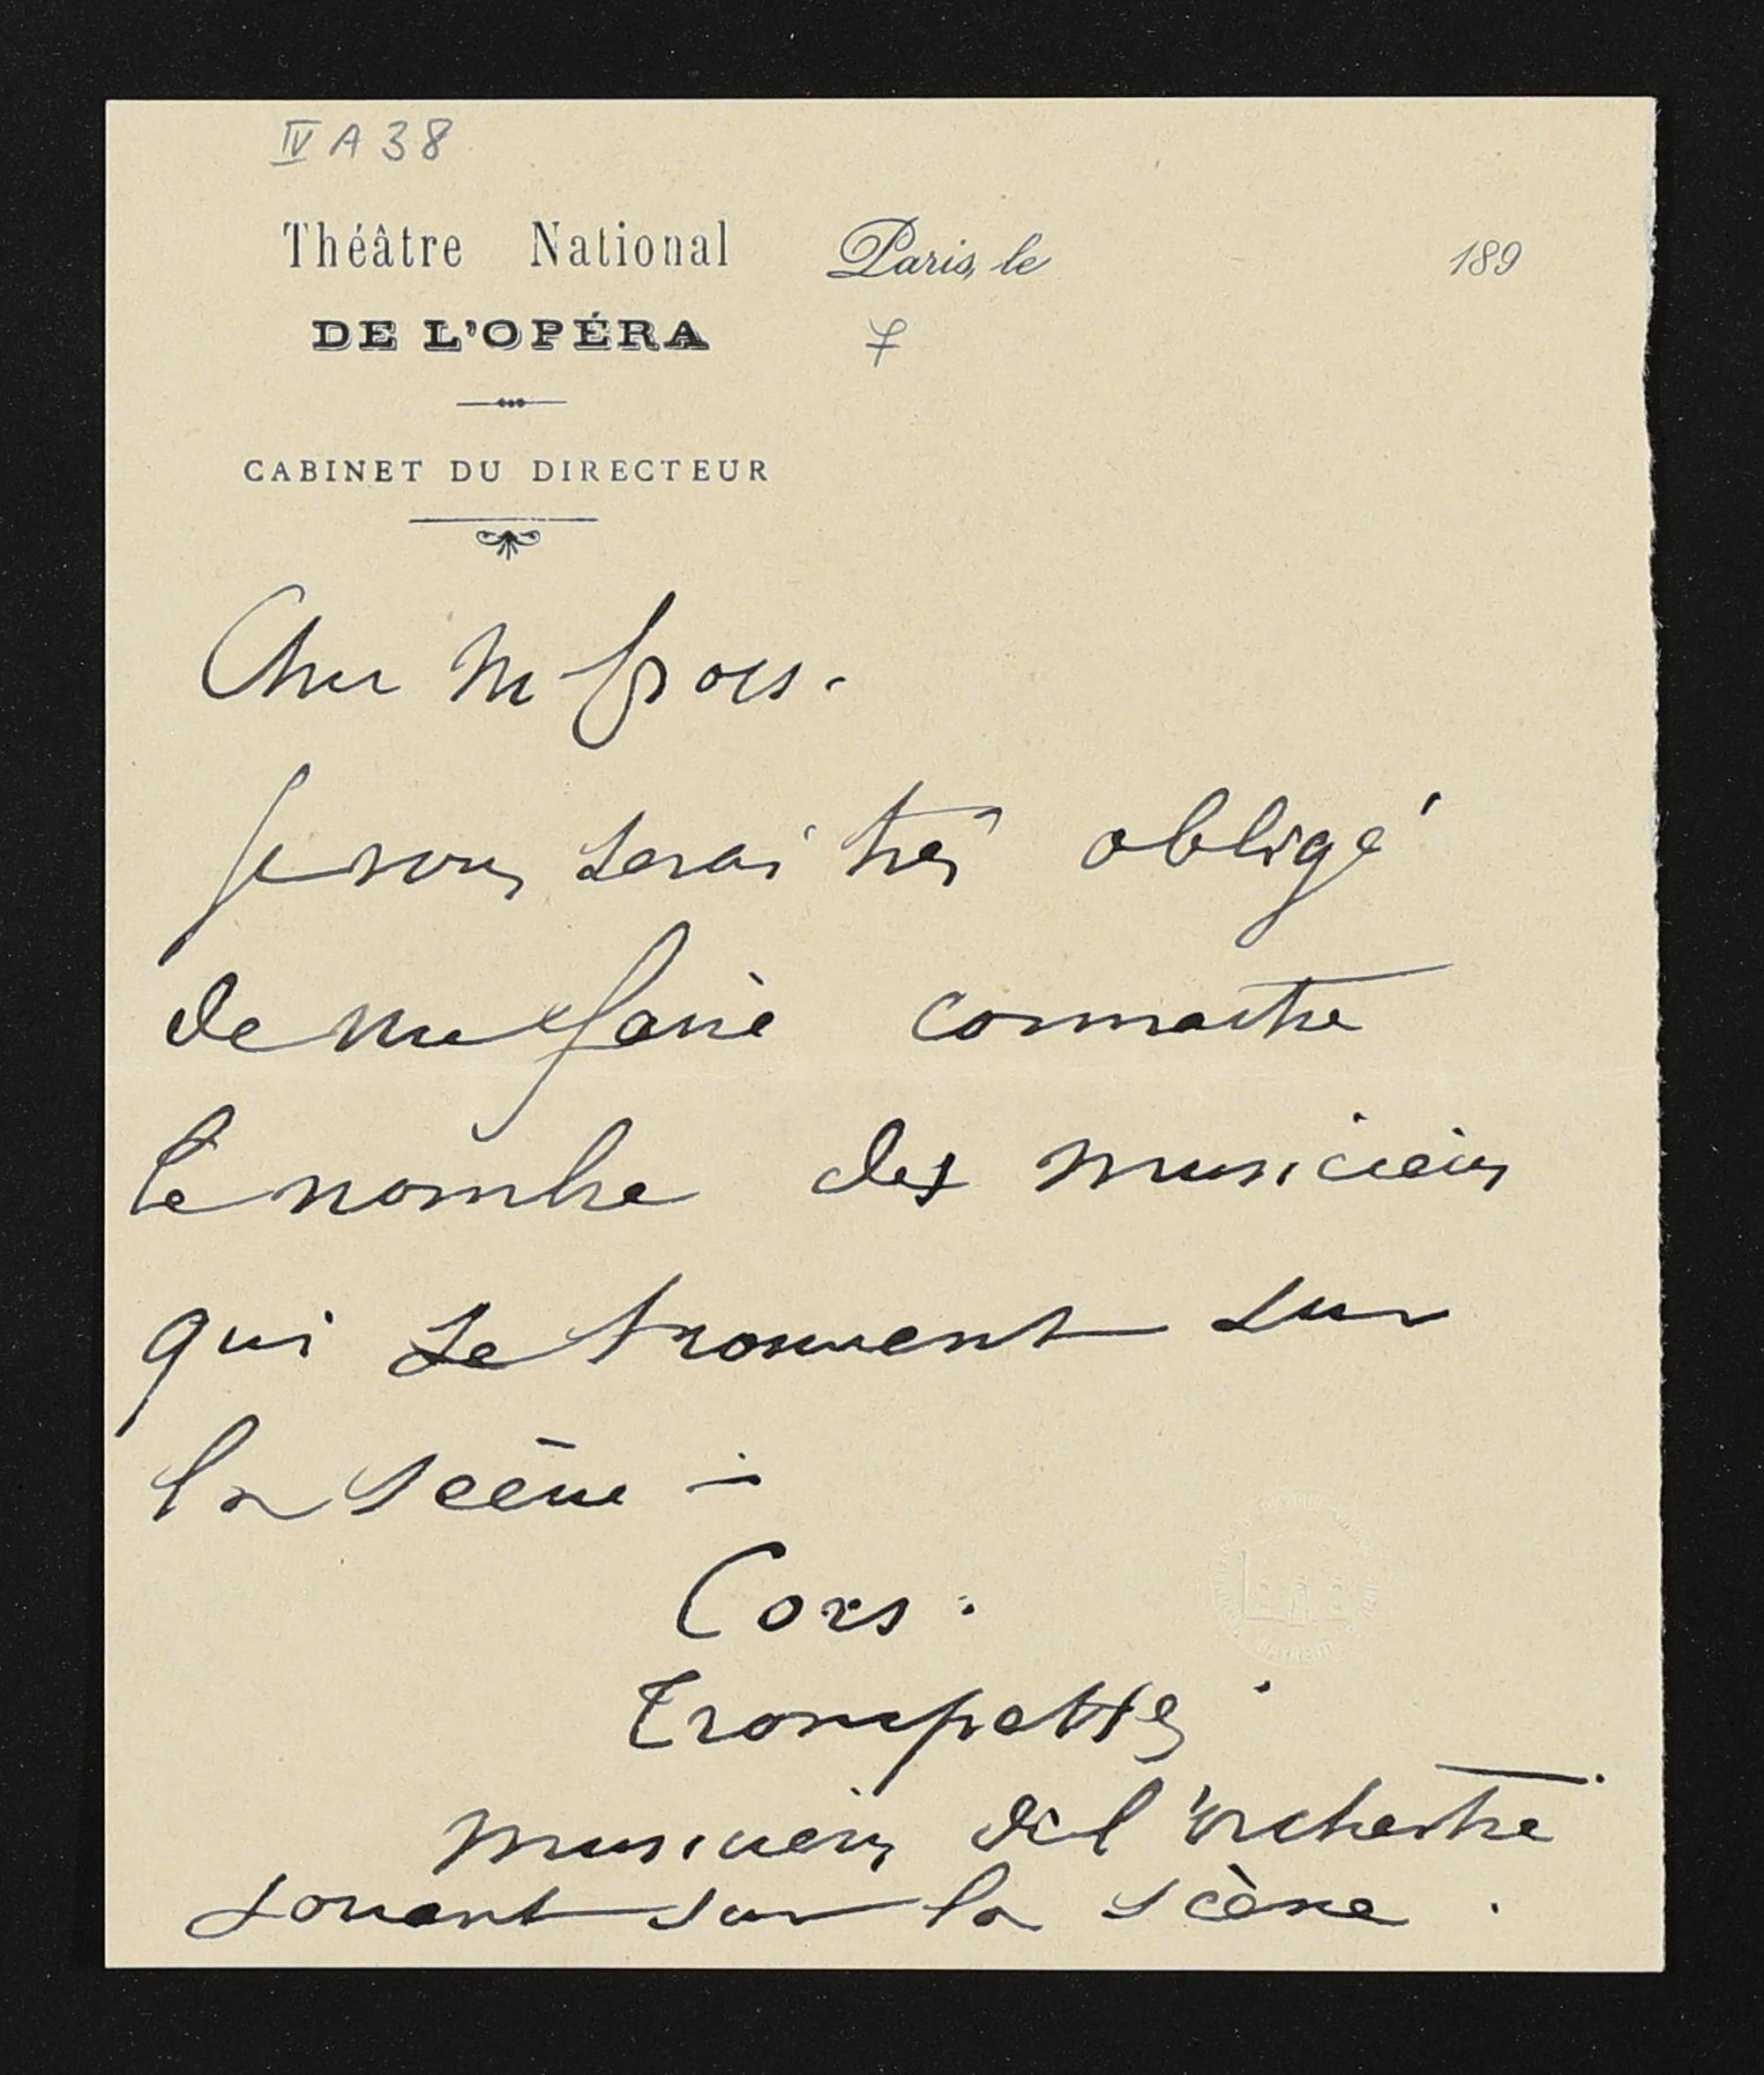 IV A 38
Théâtre National
Paris, le 189
DE L'OPÉRA
CABINET DU DIRECTEUR
Cher M
Je vous serai très obligé
de me faire connaitre
le nombre des musiciens
qui se trouvent sur
la scène -
Cors.
Trompettes.
musiciens de l'orchestre
jouant sur la scène.